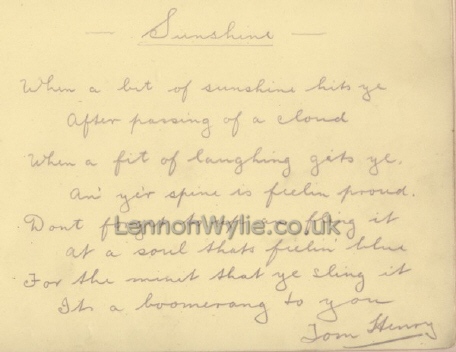 — Sunshine —
When a bit of sunshine hits ye
After passing of a cloud
When a fit of laughing gets ye.
An' yer spine is feelin proud.
Dont fling it
LennonWylie.co.uk
at a soul thats feelin' blue
For the minet that ye sling it
Its a boomerang to you
Tom Henry